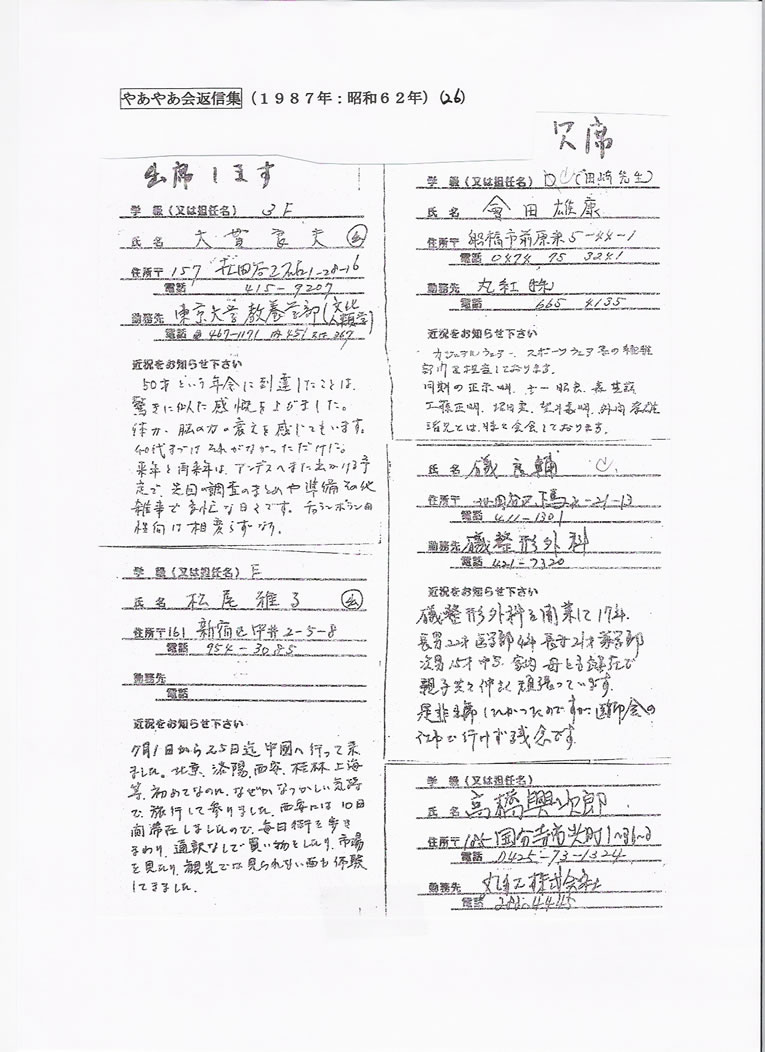 やあやあ会返信集（１９８７年：昭和６２年）(26)
出席します
学 級（又は担任名） 3F
氏 名 大貫良夫
住所〒157 1-28-16
電話 415-9207
勤務先 東京大学教養学部(文化人類学)
電話 467-1171 内451 又は 267
近況をお知らせ下さい
50才という年令に到達したことは、
驚きに似た感慨を
体力、脳の力の衰えを感じてもいます。
40代まではそれがなかっただけに。
来年と再来年は、アンデスへまた出かける予
定で、先回の調査のまとめや準備その他
雑事で多忙な日々です。チャランポランの
性向は相変らずなり。
学 級（又は担任名） E
氏 名 松尾雅
住所〒161 新宿区中井2-5-8
電話 954-3085
勤務先
電話
近況をお知らせ下さい
7月1日から25日迄中国へ行って来
ました。北京、洛陽、西安、桂林、上海
等、初めてなのに、なぜかなつかしい気持
で、旅行して参りました。西安には10日
間滞在しましたので、毎日街を歩き
まわり、通訳なしで買い物をしたり、市場
を見たり、観光では見られない面も体験
してきました。
欠席
学 級（又は担任名） (田崎先生)
氏 名 會田雄康
住所〒 船橋市前原東5-44-1
電話 0474 75 3241
勤務先 丸紅
電話 665 4135
近況をお知らせ下さい
カジュアルウェアー、スポーツウェア
部門を担当しております。
同期の
工藤正明、
諸兄とは、時々会食しております。
氏 名 磯良輔
住所〒 下馬 -21-13
電話 411-1301
勤務先 磯整形外科
電話 421-7320
近況をお知らせ下さい
磯整形外科を開業して17年、
長男22才医学部4年 長女21才薬学部
次男15才中3、家内、母とも健在で
親子共々仲よく頑張っています。
是非出席したかったのですが、医師会の
仕事で行けず残念です。
学 級（又は担任名）
氏 名 高橋興次郎
住所〒185 国分寺市光町1-36-3
電話 0425-73-1324
勤務先 株式会社
電話